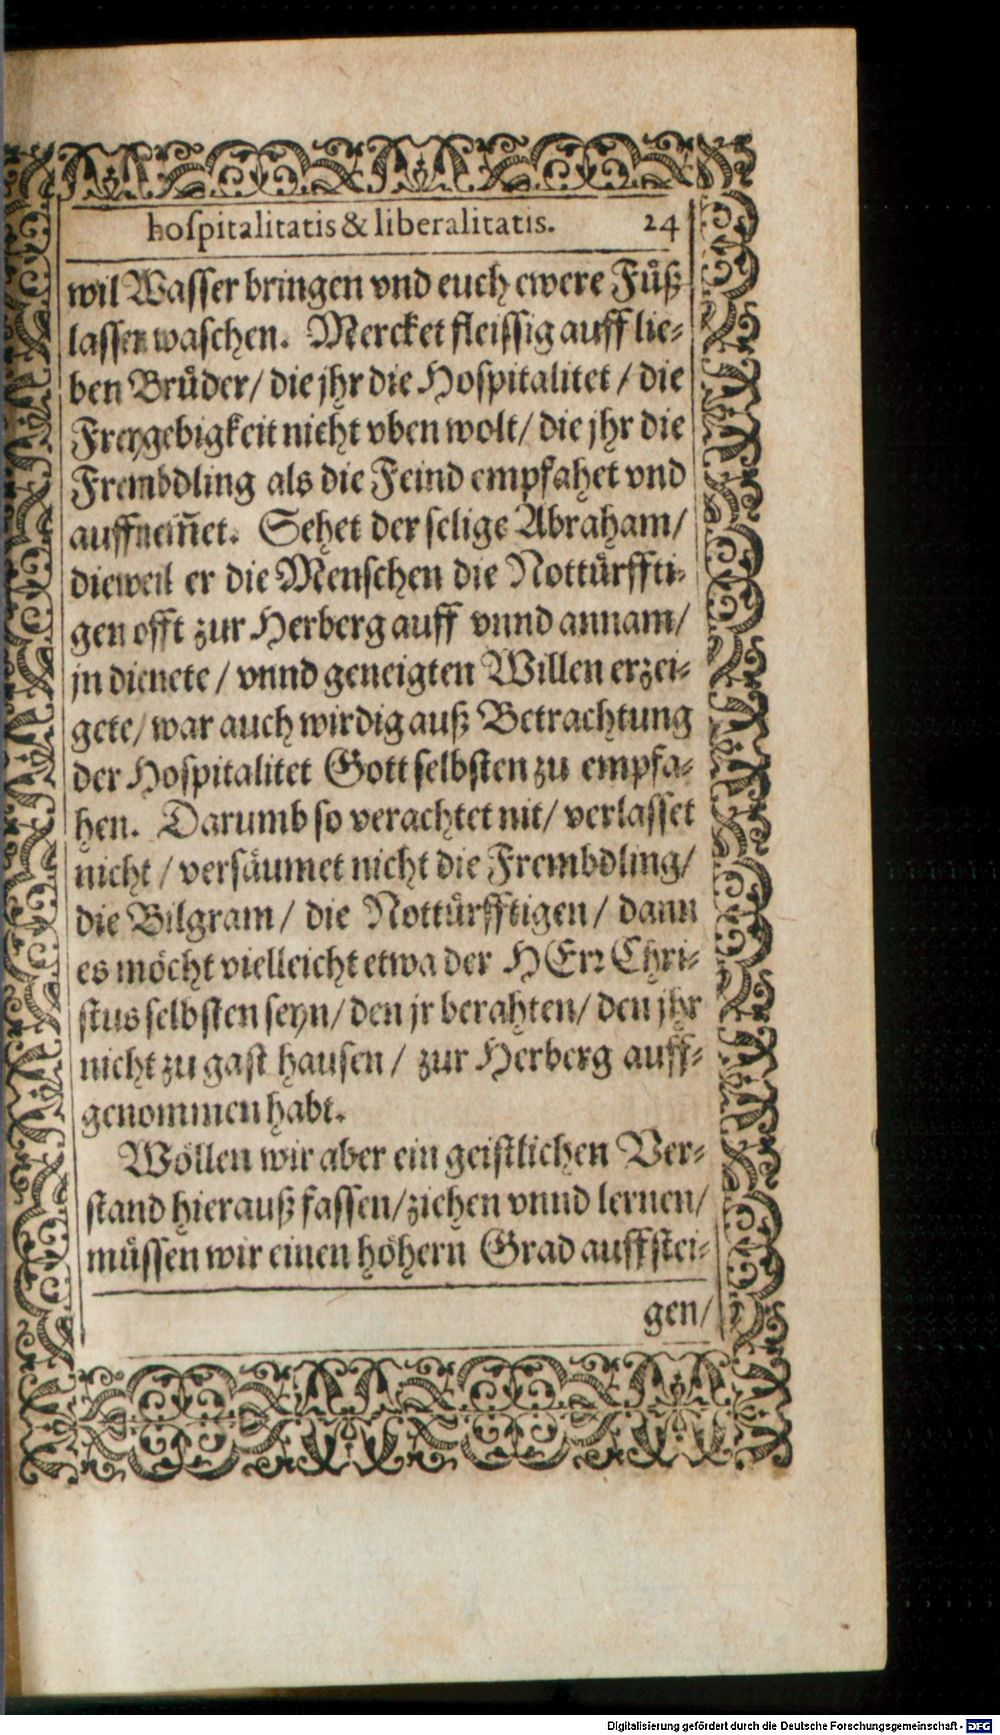 hospitalitatis & liberalitatis. 24
wil Wasser bringen vnd euch ewere Fuͤß
lassen waschen. Mercket fleissig auff lie-
ben Bruͤder/ die jhr die Hospitalitet / die
Freygebigkeit nicht vben wolt/ die jhr die
Frembdling als die Feind empfahet vnd
auffnem̃et. Sehet der selige Abraham/
dieweil er die Menschen die Nottuͤrffti-
gen offt zur Herberg auff vnnd annam/
jn dienete / vnnd geneigten Willen erzei-
gete/ war auch wirdig auß Betrachtung
der Hospitalitet Gott selbsten zu empfa-
hen. Darumb so verachtet nit/ verlasset
nicht / versaͤumet nicht die Frembdling/
die Bilgram / die Nottuͤrfftigen/ dann
es moͤcht vielleicht etwa der HErꝛ Chri-
stus selbsten seyn/ den jr berahten/ den jhr
nicht zu gast hausen / zur Herberg auff-
genommen habt.
Woͤllen wir aber ein geistlichen Ver-
stand hierauß fassen/ ziehen vnnd lernen/
muͤssen wir einen hoͤhern Grad auffstei-
gen/
Digitalisierung gefördert durch die Deutsche Forschungsgemeinschaft - DFG